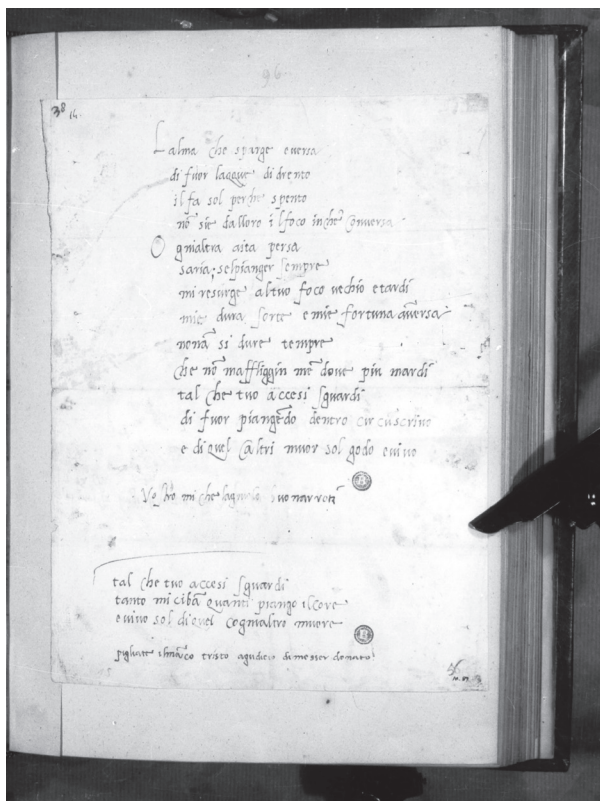 96
38
Lalma che sparge e versa
di fuor lacque di drento
il fa sol perche spento
nō sie dalloro ilfoco inchē conversa
Ognialtra aita persa
saria; selpianger sempre
mi resurge altuo foco vechio e tardi
mie dura sorte e mie fortuna aversa
nonā si dure tempre
che nō maffliggin mē dove piu mardi
tal che tuo accesi sguardi
di fuor piangēdo dentro circuscrivo
e diquel caltri muor sol godo e vivo
Vo
tal che tuo accesi sguardi
tanto mi cibā quanti piango ilcore
e vivo sol diquel cognialtro muore
pigliate tristo agudicio dimesser donato